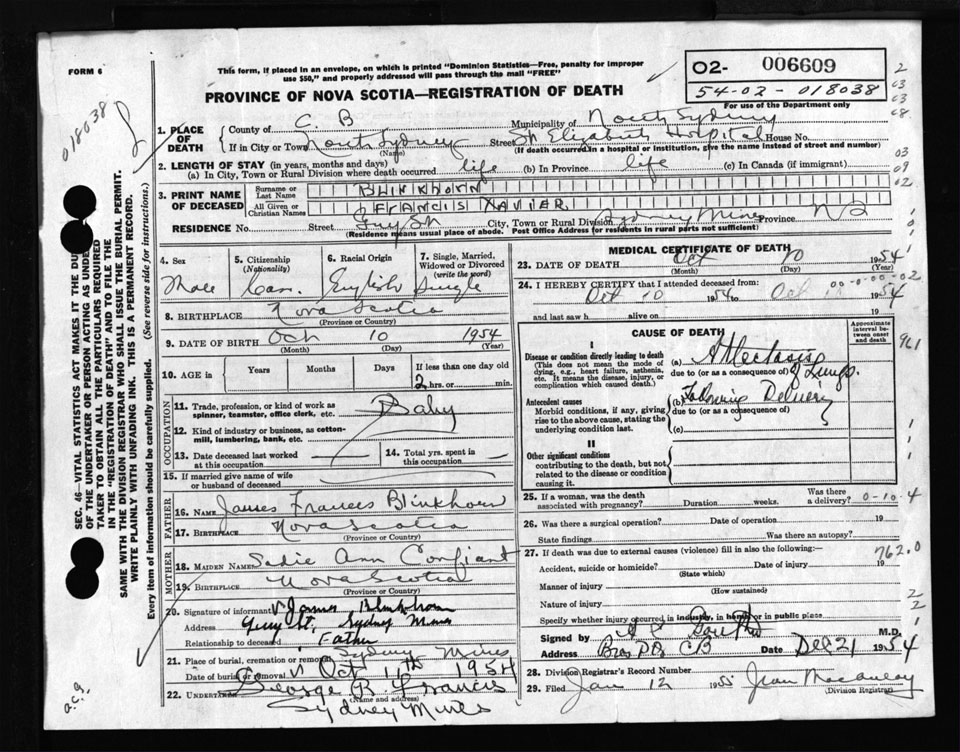 FORM 6
This form, if placed in an envelope, on which is printed "Dominion Statistics—Free, penalty for improper
use $50," and properly addressed will pass through the mail "FREE"
02- 006609
54-02-018038
For use of the Department only
018038
PROVINCE OF NOVA SCOTIA—REGISTRATION OF DEATH
1. PLACE OF DEATH
County of C. B Municipality of North Sydney
If in City or Town North Sydney (Name) Street St Elizabeth Hospital House No.
(If death occurred in a hospital or institution, give the name instead of street and number)
2. LENGTH OF STAY (in years, months and days)
(a) In City, Town or Rural Division where death occurred life (b) In Province life (c) In Canada (if immigrant)
3. PRINT NAME OF DECEASED
Surname or Last Name BLINKHORN
All Given or Christian Names FRANCIS XAVIER
RESIDENCE No. Street Guy St City, Town or Rural Division Sydney Mines Province NS
(Residence means usual place of abode. Post Office Address for residents in rural parts not sufficient)
4. Sex
Male
5. Citizenship (Nationality)
Can.
6. Racial Origin
English
7. Single, Married, Widowed or Divorced (write the word)
Single
8. BIRTHPLACE Nova Scotia
(Province or Country)
9. DATE OF BIRTH Oct 10 1954
(Month) (Day) (Year)
10. AGE in Years Months Days If less than one day old
2 hrs. or min.
OCCUPATION
11. Trade, profession, or kind of work as spinner, teamster, office clerk, etc. Baby
12. Kind of industry or business, as cotton-mill, lumbering, bank, etc.
13. Date deceased last worked at this occupation
14. Total yrs. spent in this occupation
15. If married give name of wife or husband of deceased
FATHER
16. Name James Frances Blinkhorn
17. Birthplace Nova Scotia
(Province or Country)
MOTHER
18. MAIDEN NAME Sadie Ann Confiant
19. BIRTHPLACE Nova Scotia
(Province or Country)
20. Signature of informant James Blinkhorn
Address Guy St, Sydney Mines
Relationship to deceased Father
21. Place of burial, cremation or removal Sydney Mines
Date of burial or removal Oct 11th 1954
22. UNDERTAKER George R. Francis
(Name and address)
Sydney Mines
MEDICAL CERTIFICATE OF DEATH
23. DATE OF DEATH Oct 10 1954
(Month) (Day) (Year)
24. I HEREBY CERTIFY that I attended deceased from:
Oct 10 1954 to Oct 1954
and last saw h alive on 19
CAUSE OF DEATH
Approximate interval between onset and death
I
Disease or condition directly leading to death
(This does not mean the mode of dying, e.g., heart failure, asthenia, etc. It means the disease, injury, or complication which caused death.)
(a) Atelectasis of Lungs.
due to (or as a consequence of)
Antecedent causes
Morbid conditions, if any, giving rise to the above cause, stating the underlying condition last.
(b) Following Delivery
due to (or as a consequence of)
(c)
II
Other significant conditions
contributing to the death, but not related to the disease or condition causing it.
25. If a woman, was the death associated with pregnancy? Duration weeks. Was there a delivery?
0-10-4
26. Was there a surgical operation? Date of operation 19
State findings Was there an autopsy?
27. If death was due to external causes (violence) fill in also the following:—
762.0
Accident, suicide or homicide? Date of injury 19
(State which)
Manner of injury
(How sustained)
Nature of injury
Specify whether injury occurred in industry, in home or in public place
Signed by M.D.
Address Bras D'Or CB Date Dec 21 1954
28. Division Registrar's Record Number
29. Filed Jan 12 1955 Jean Macaulay
(Division Registrar)
SEC. 46—VITAL STATISTICS ACT MAKES IT THE DUTY
OF THE UNDERTAKER OR PERSON ACTING AS UNDERTAKER
TO OBTAIN ALL THE PARTICULARS REQUIRED
IN THE "REGISTRATION OF DEATH" AND TO FILE THE
SAME WITH THE DIVISION REGISTRAR WHO SHALL ISSUE THE BURIAL PERMIT.
WRITE PLAINLY WITH UNFADING INK. THIS IS A PERMANENT RECORD.
Every item of information should be carefully supplied. (See reverse side for instructions.)